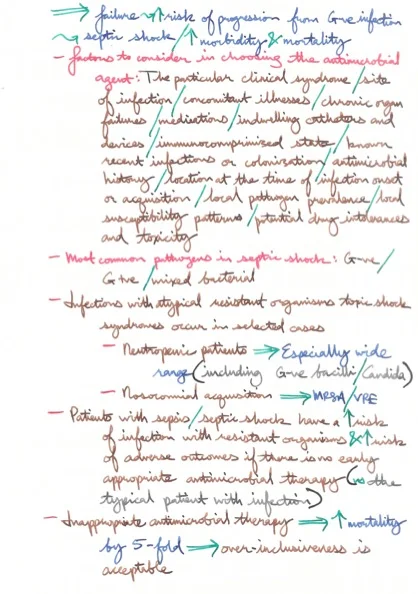 ⇒ failure → ↑ risk of progression from G-ve infection
→ septic shock / ↑ morbidity & mortality
- factors to consider in choosing the antimicrobial
agent: The particular clinical syndrome / site
of infection / concomitant illnesses / chronic organ
failures / medications / indwelling catheters and
devices / immunocompromized state / known
recent infections or colonization / antimicrobial
history / location at the time of infection onset
or acquisition / local pathogen prevalence / local
susceptibility patterns / potential drug intolerances
and toxicity
- Most common pathogens in septic shock: G-ve /
G+ve / mixed bacterial
- Infections with atypical resistant organisms shock
syndromes occur in selected cases
- Neutropenic patients ⇒ Especially wide
range (including G-ve bacilli / Candida)
- Nosocomial acquisition ⇒ MRSA / VRE
- Patients with sepsis / septic shock have a ↑ risk
of infection with resistant organisms & ↑ risk
of adverse outcomes if there is no early
appropriate antimicrobial therapy (vs the
typical patient with infection)
- Inappropriate antimicrobial therapy ⇒ ↑ mortality
by 5-fold → over-inclusiveness is
acceptable